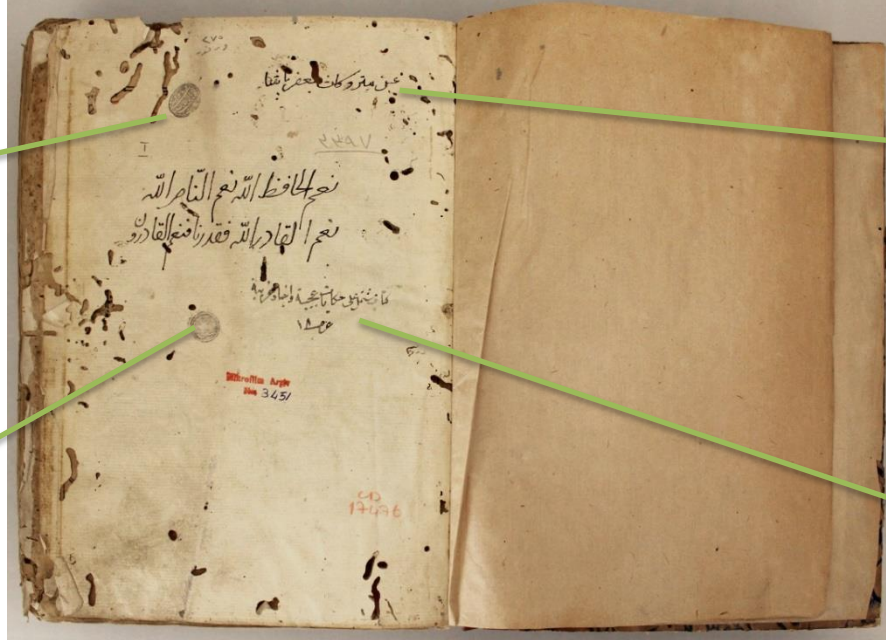 عن متروكات جعفر پاشا
I
نعم الحافظ الله نعم الناصر الله
نعم القادر الله فقدرنا فنعم القادرون
حكايات عجيبة واخبار غريبة
Mikrofilm Arşiv
No 3451
CD
17476